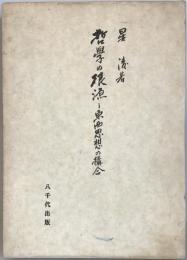 星 清 著
哲學の根源と東西思想の構合
八千代出版